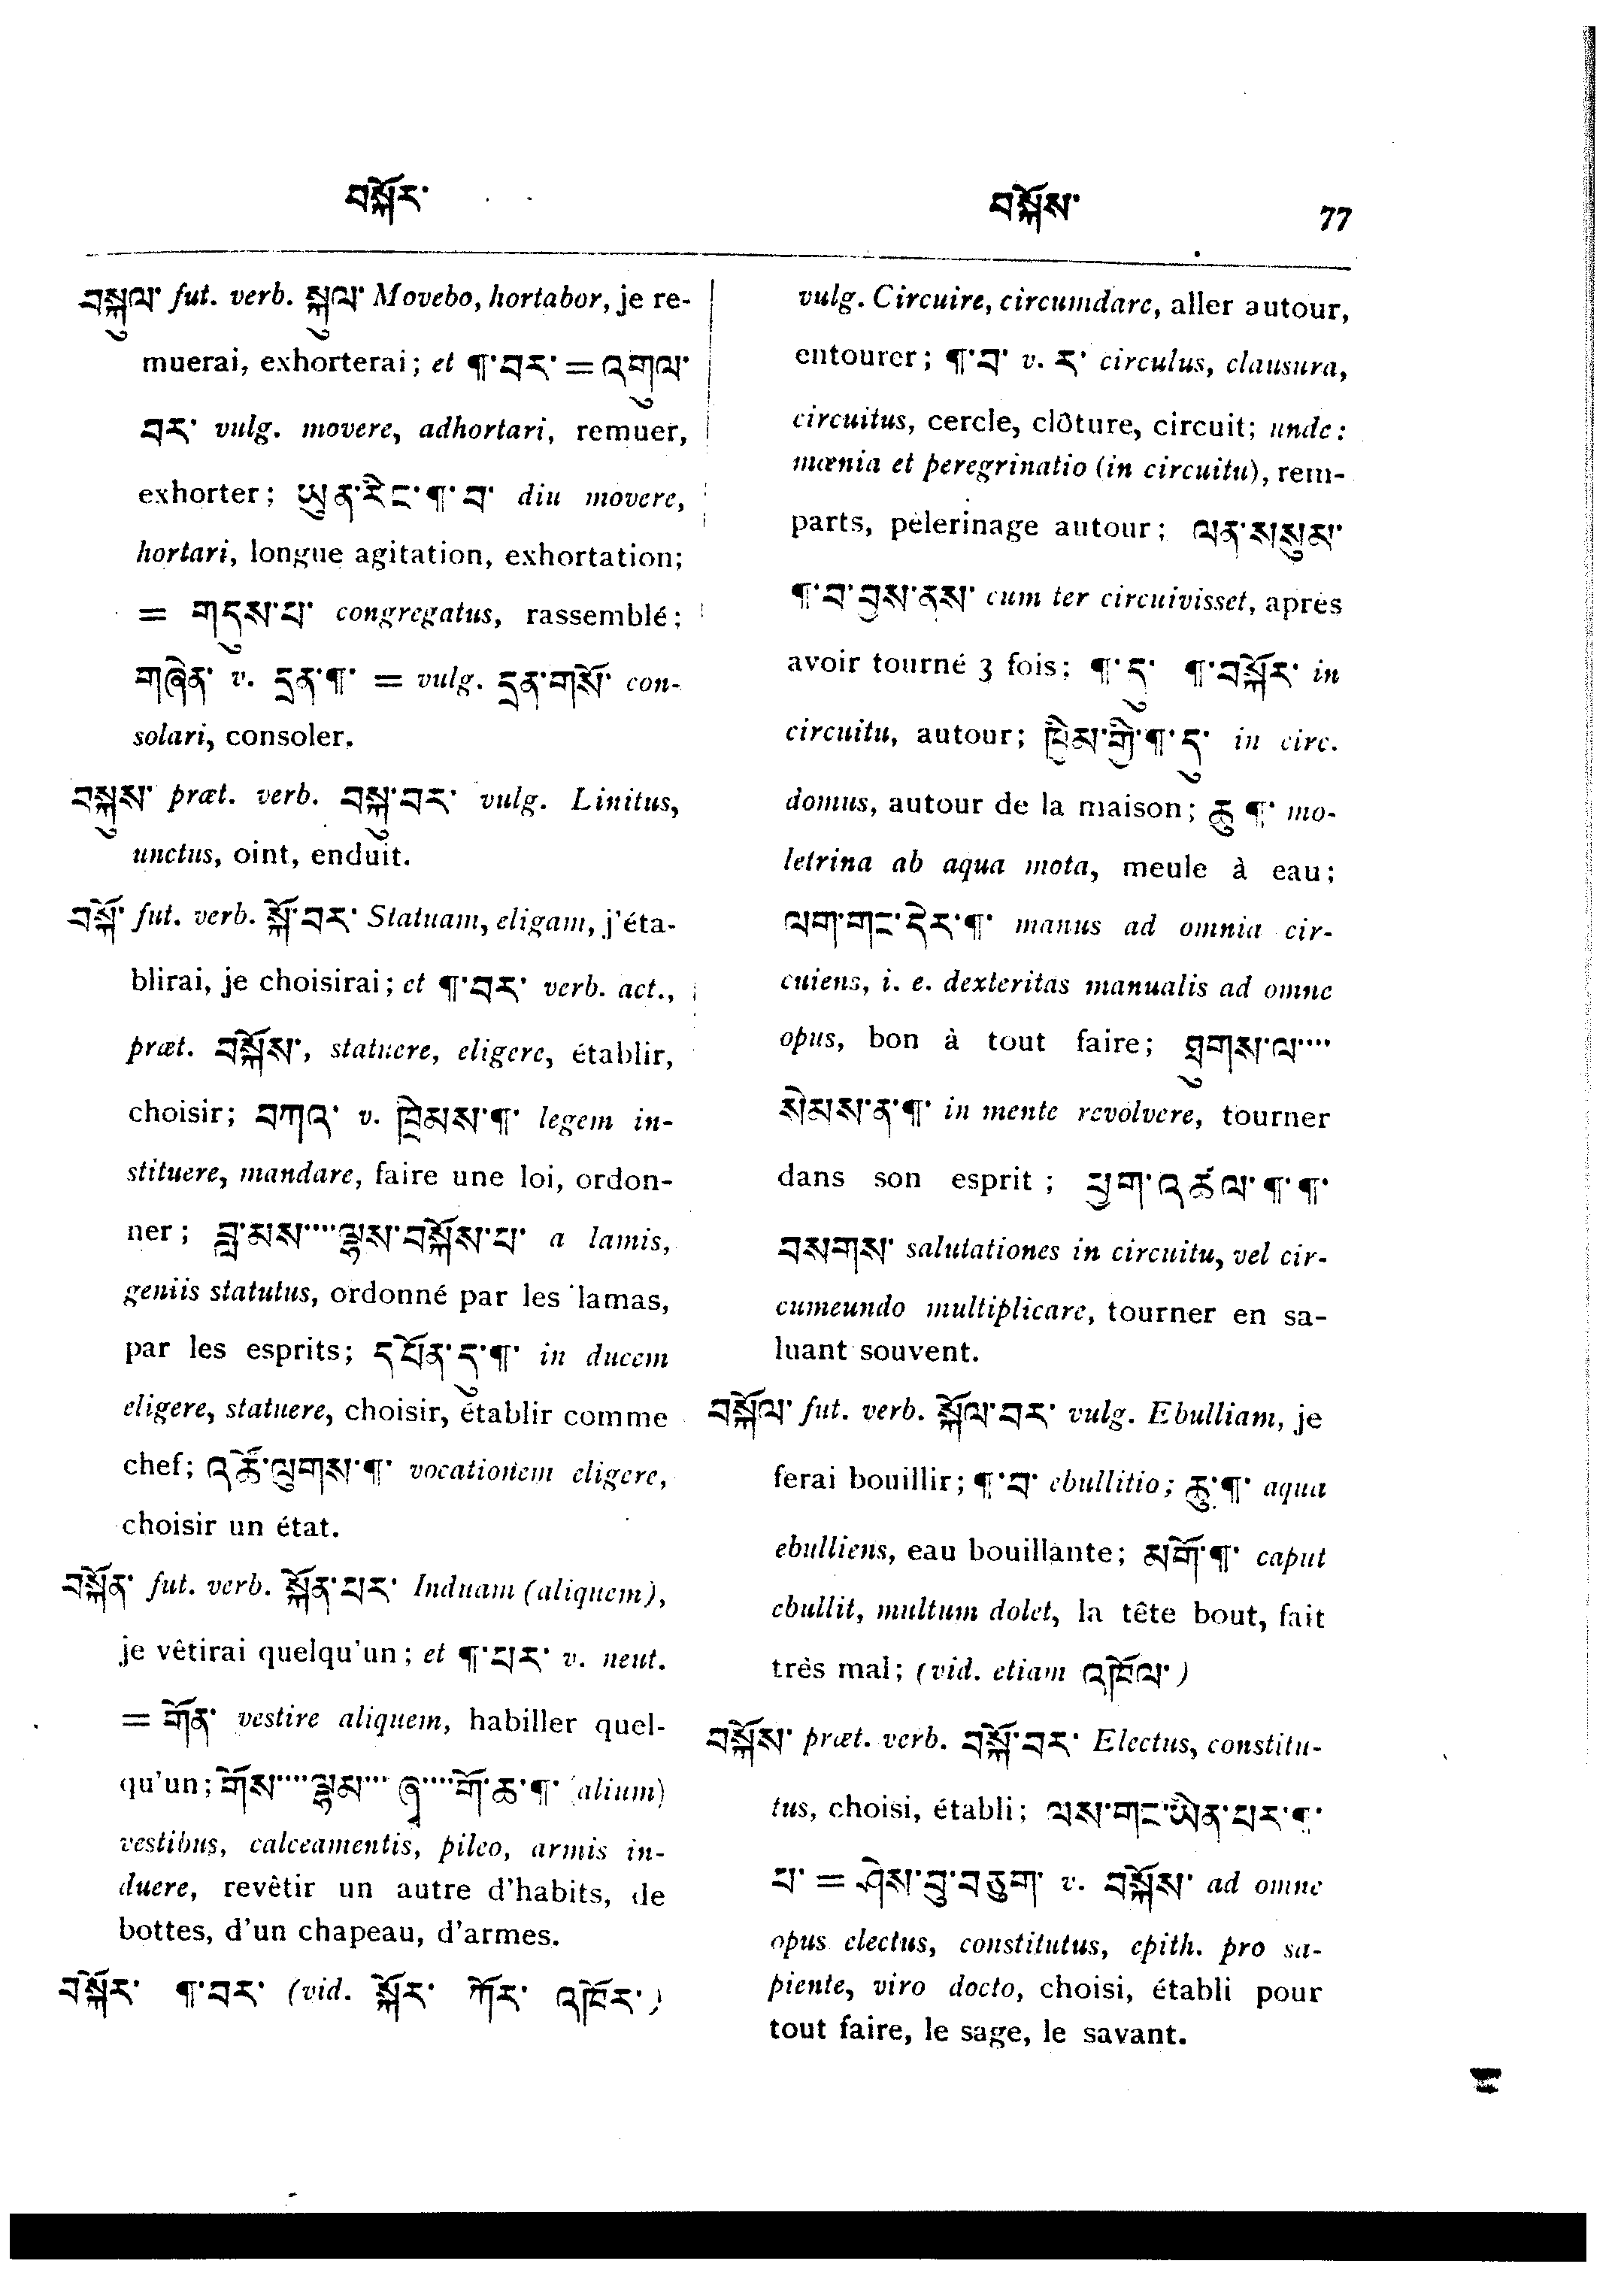 བསྐོར་
བསྐོས་
77
བསྐུལ་ fut. verb. སྐུལ་ Movebo, hortabor, je re-
muerai, exhorterai; et ¶་བར་ = འགུལ་
བར་ vulg. movere, adhortari, remuer,
exhorter; ཡུན་རིང་¶་བ་ diu movere,
hortari, longue agitation, exhortation;
= གདུས་པ་ congregatus, rassemblé;
གཞེན་ v. དྲན་¶་ = vulg. དྲན་གསོ་ con-
solari, consoler.
བསྐུས་ præt. verb. བསྐུ་བར་ vulg. Linitus,
unctus, oint, enduit.
བསྐོ་ fut. verb. སྐོ་བར་ Statuam, eligam, j'éta-
blirai, je choisirai; et ¶་བར་ verb. act.,
præt. བསྐོས་, statuere, eligere, établir,
choisir; བཀའ་ v. ཁྲིམས་¶་ legem in-
stituere, mandare, faire une loi, ordon-
ner; བླ་མས་... ལྷས་བསྐོས་པ་ a lamis,
geniis statutus, ordonné par les lamas,
par les esprits; དཔོན་དུ་¶་ in ducem
eligere, statuere, choisir, établir comme
chef; འཚོ་ལུགས་¶་ vocationem eligere,
choisir un état.
བསྐོན་ fut. verb. སྐོན་པར་ Induam (aliquem),
je vêtirai quelqu'un; et ¶་པར་ v. neut.
= གོན་ vestire aliquem, habiller quel-
qu'un; གོས་.... ལྷམ་... ཞྭ་.... གོ་ཆ་¶་ (alium)
vestibus, calceamentis, pileo, armis in-
duere, revêtir un autre d'habits, de
bottes, d'un chapeau, d'armes.
བསྐོར་ ¶་བར་ (vid. སྐོར་ ཀོར་ འཁོར་)
vulg. Circuire, circumdare, aller autour,
entourer; ¶་བ་ v. ར་ circulus, clausura,
circuitus, cercle, clôture, circuit; unde:
mœnia et peregrinatio (in circuitu), rem-
parts, pèlerinage autour; ལན་སསུམ་
¶་བ་བྱས་ནས་ cum ter circuivisset, après
avoir tourné 3 fois; ¶་དུ་ ¶་བསྐོར་ in
circuitu, autour; ཁྱིམ་གྱི་¶་དུ་ in circ.
domus, autour de la maison; ཆུ་¶་ mo-
letrina ab aqua mota, meule à eau;
ལག་གང་དེར་¶་ manus ad omnia cir-
cuiens, i. e. dexteritas manualis ad omne
opus, bon à tout faire; ཐུགས་ལ་....
སེམས་ན་¶་ in mente revolvere, tourner
dans son esprit; ཕྱག་འཚལ་¶་¶་
བསགས་ salutationes in circuitu, vel cir-
cumeundo multiplicare, tourner en sa-
luant souvent.
བསྐོལ་ fut. verb. སྐོལ་བར་ vulg. Ebulliam, je
ferai bouillir; ¶་བ་ ebullitio; ཆུ་¶་ aqua
ebulliens, eau bouillante; མགོ་¶་ caput
ebullit, multum dolet, la tête bout, fait
très mal; (vid. etiam འཁོལ་)
བསྐོས་ præt. verb. བསྐོ་བར་ Electus, constitu-
tus, choisi, établi; ལས་གང་ཡིན་པར་¶་
པ་ = ཤེས་བྱ་བཅུག་ v. བསྐོས་ ad omne
opus electus, constitutus, epith. pro sa-
piente, viro docto, choisi, établi pour
tout faire, le sage, le savant.